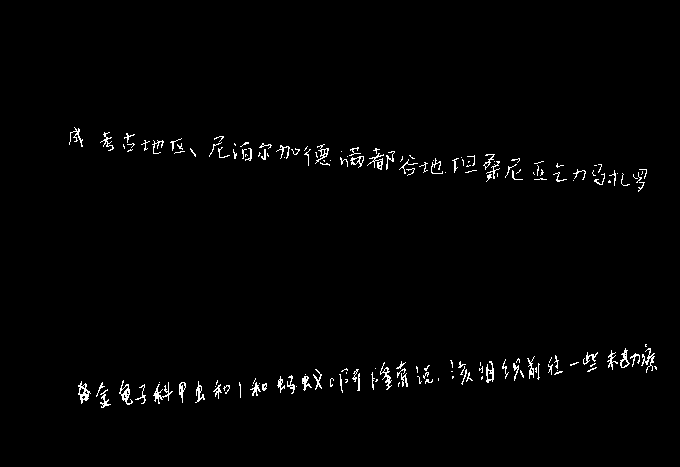 成考古地区、尼泊尔加德满都谷地坦桑尼亚乞力马扎罗
金龟子科甲虫和1和蚂蚁。阿隆索说,该组织前往一些未勘察